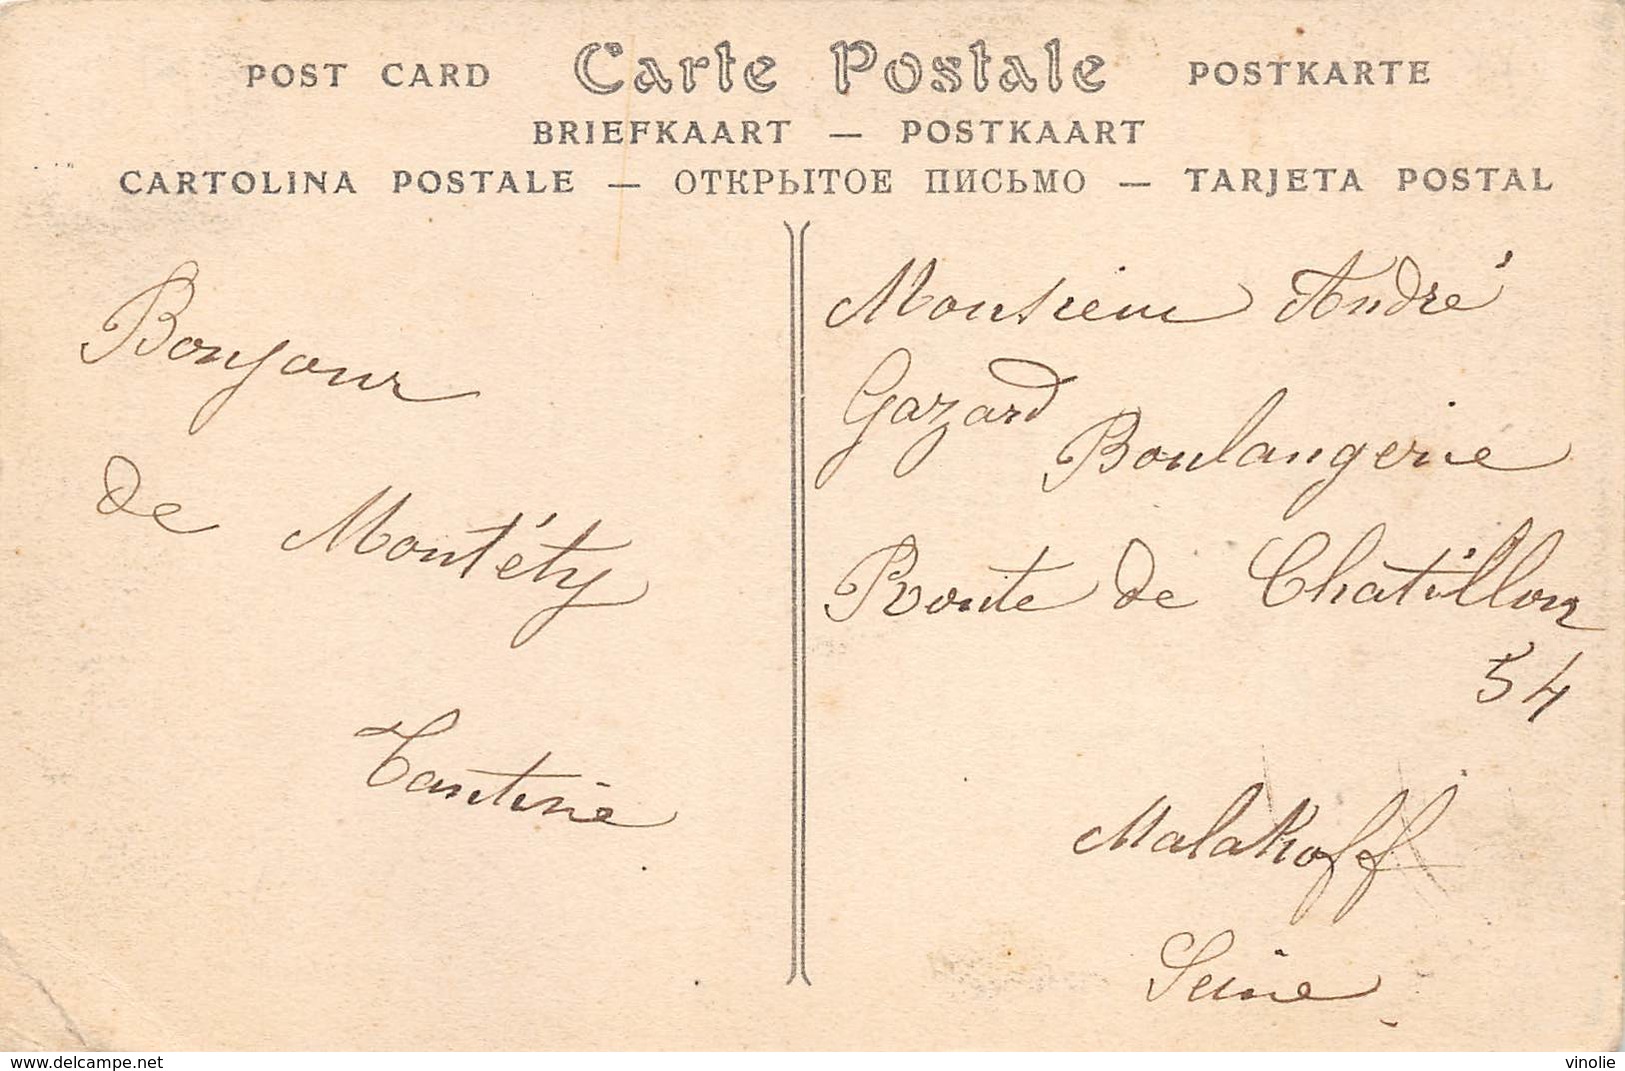 POST CARD Carte Postale POSTKARTE
BRIEFKAART — POSTKAART
CARTOLINA POSTALE — ОТКРЫТОЕ ПИСЬМО — TARJETA POSTAL
Bonjour
de Montéty
Tantine
Monsieur André
Gazard
Boulangerie
Route de Chatillon
54
Malakoff
Seine
www.delcampe.net
vinolie